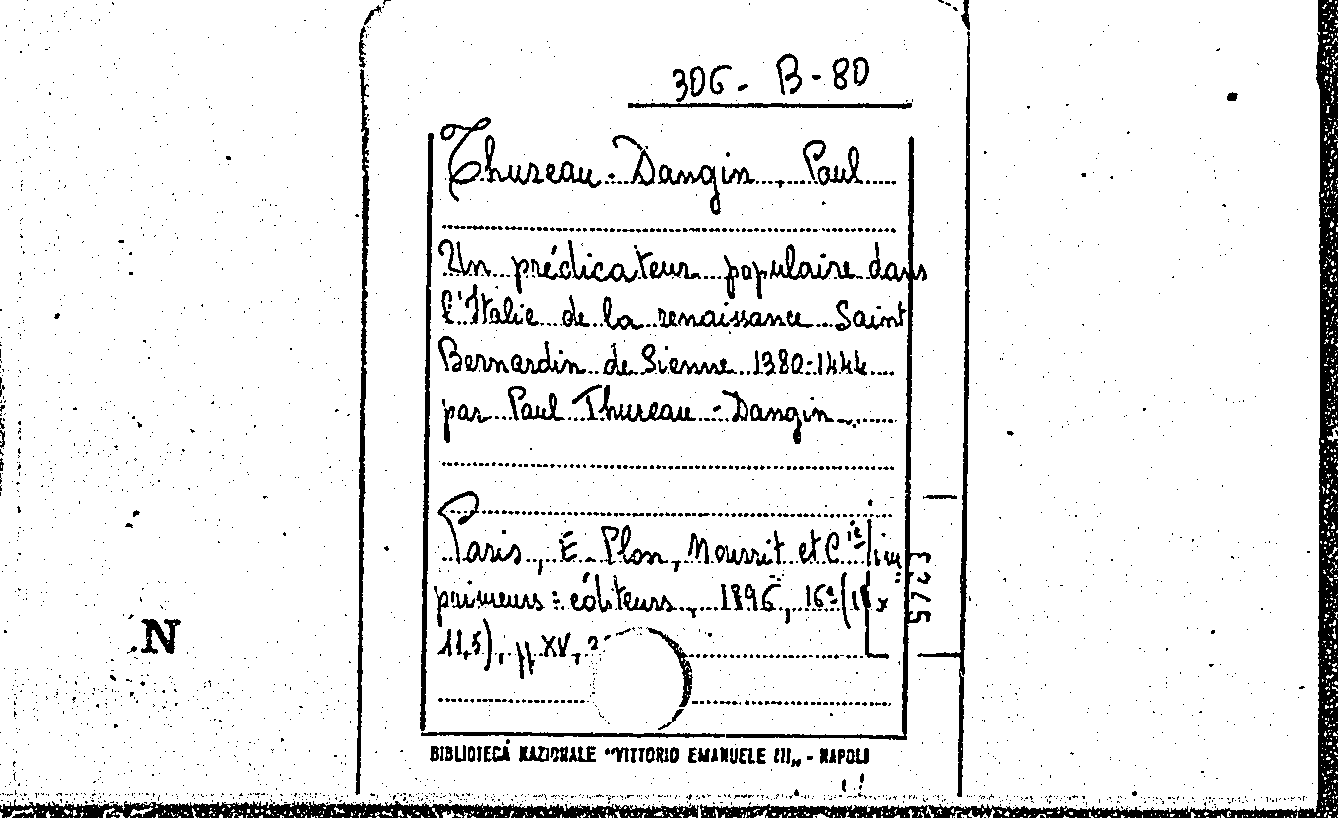 306 - B - 80
Thureau - Dangin, Paul
Un prédicateur populaire dans
l'Italie de la renaissance Saint
Bernardin de Sienne 1380-1444
par Paul Thureau - Dangin
Paris, E. Plon, Nourrit et Cie, im
primeurs-éditeurs, 1896, 16º (18 x
11,5), pp XV,
5763
N
BIBLIOTECA NAZIONALE "VITTORIO EMANUELE III" - NAPOLI